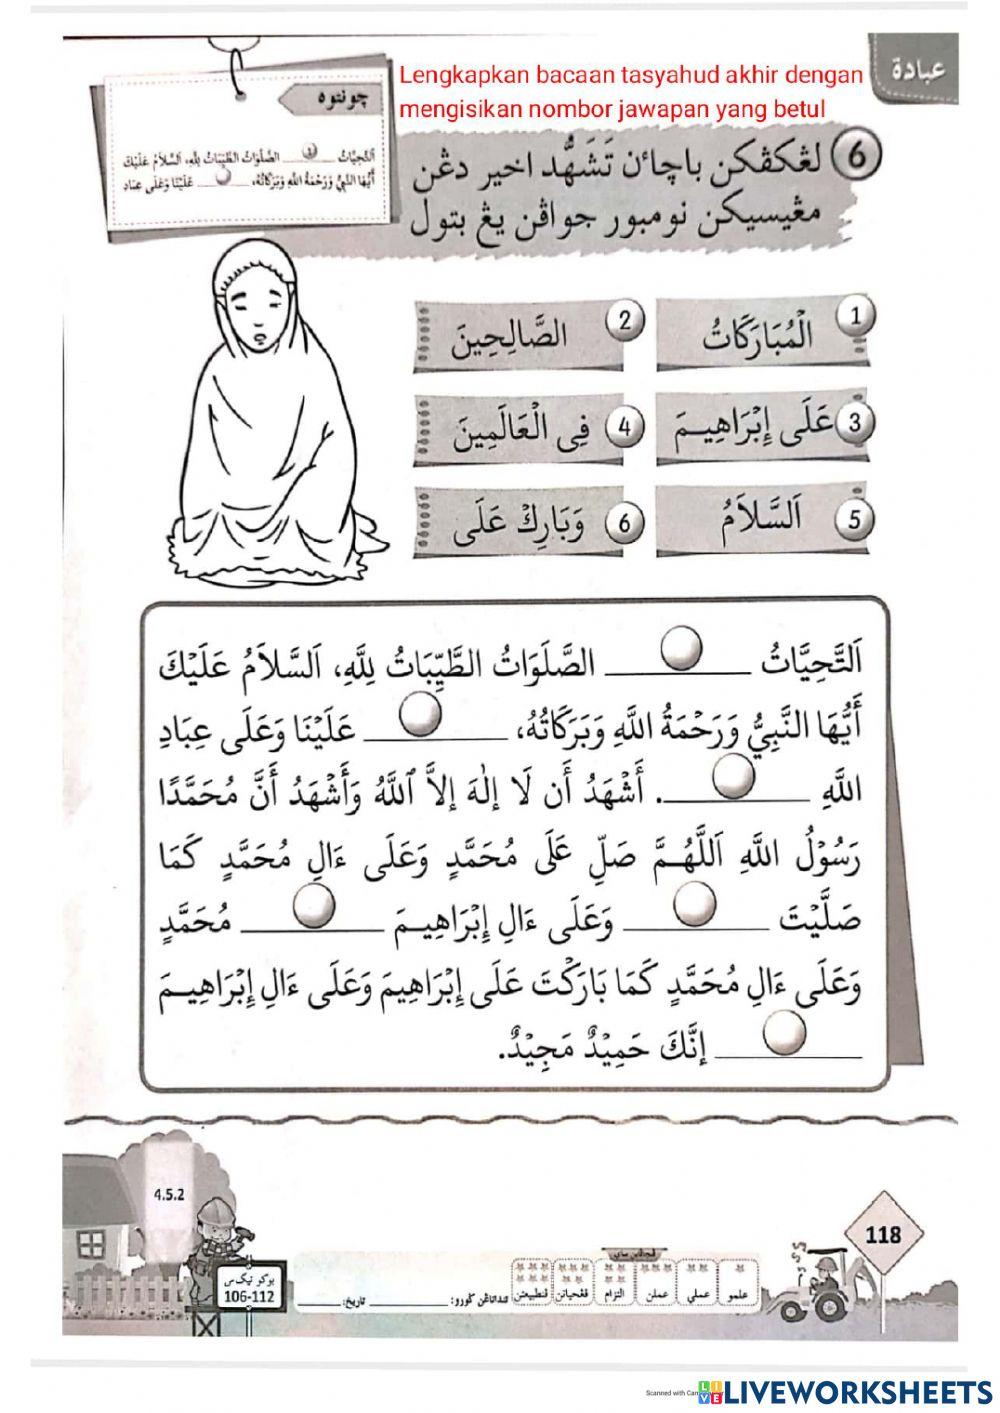 عبادة
Lengkapkan bacaan tasyahud akhir dengan
mengisikan nombor jawapan yang betul
چونتوه
اَلتَّحِيَّاتُ ـــــ الصَّلَوَاتُ الطَّيِّبَاتُ لِلَّهِ، اَلسَّلاَمُ عَلَيْكَ
أَيُّهَا النَّبِيُّ وَرَحْمَةُ اللَّهِ وَبَرَكَاتُهُ، ـــــ عَلَيْنَا وَعَلَى عِبَادِ
6 لڠكڤكن باچاءن تَشَهُّد اخير دڠن
مڠيسيكن نومبور جواڤن يڠ بتول
1 الْمُبَارَكَاتُ
2 الصَّالِحِينَ
3 عَلَى إِبْرَاهِيمَ
4 فِى الْعَالَمِينَ
5 اَلسَّلاَمُ
6 وَبَارِكْ عَلَى
اَلتَّحِيَّاتُ ـــــ الصَّلَوَاتُ الطَّيِّبَاتُ لِلَّهِ، اَلسَّلاَمُ عَلَيْكَ
أَيُّهَا النَّبِيُّ وَرَحْمَةُ اللَّهِ وَبَرَكَاتُهُ، ـــــ عَلَيْنَا وَعَلَى عِبَادِ
اللَّهِ ـــــ. أَشْهَدُ أَن لَا إِلٰهَ إلاَّ ٱللَّهُ وَأَشْهَدُ أَنَّ مُحَمَّدًا
رَسُوْلُ اللَّهِ اَللَّهُمَّ صَلِّ عَلَى مُحَمَّدٍ وَعَلَى ءَالِ مُحَمَّدٍ كَمَا
صَلَّيْتَ ـــــ وَعَلَى ءَالِ إِبْرَاهِيمَ ـــــ مُحَمَّدٍ
وَعَلَى ءَالِ مُحَمَّدٍ كَمَا بَارَكْتَ عَلَى إِبْرَاهِيمَ وَعَلَى ءَالِ إِبْرَاهِيمَ
ـــــ إِنَّكَ حَمِيْدٌ مَجِيْدٌ.
4.5.2
118
بوكو تيك س
106-112
علمو
عملي
عملن
التزام
ڤڠحياتن
تنداتاڠن ݢورو: ـــــ تاريخ: ـــــ
LIVEWORKSHEETS